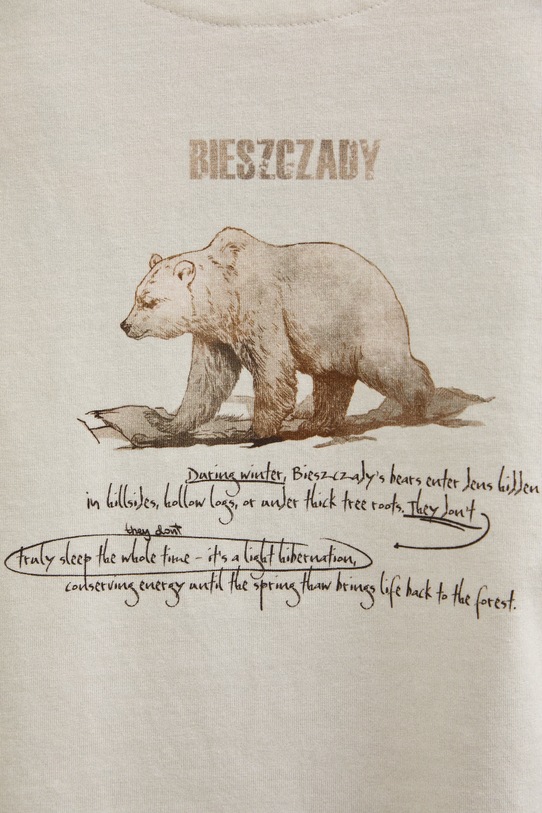 BIESZCZADY
During winter, Bieszczady's bears enter dens hidden
in hillsides, hollow logs, or under thick tree roots. They don't
they dont
truly sleep the whole time - it's a light hibernation,
conserving energy until the spring thaw brings life back to the forest.